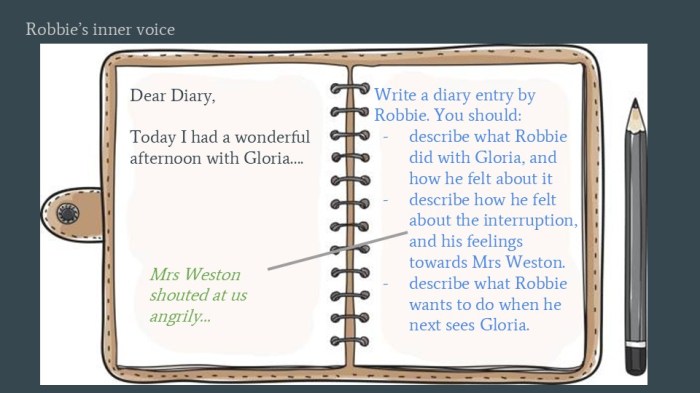 Robbie's inner voice
Dear Diary,
Today I had a wonderful
afternoon with Gloria....
Mrs Weston
shouted at us
angrily...
Write a diary entry by
Robbie. You should:
- describe what Robbie
did with Gloria, and
how he felt about it
- describe how he felt
about the interruption,
and his feelings
towards Mrs Weston.
- describe what Robbie
wants to do when he
next sees Gloria.